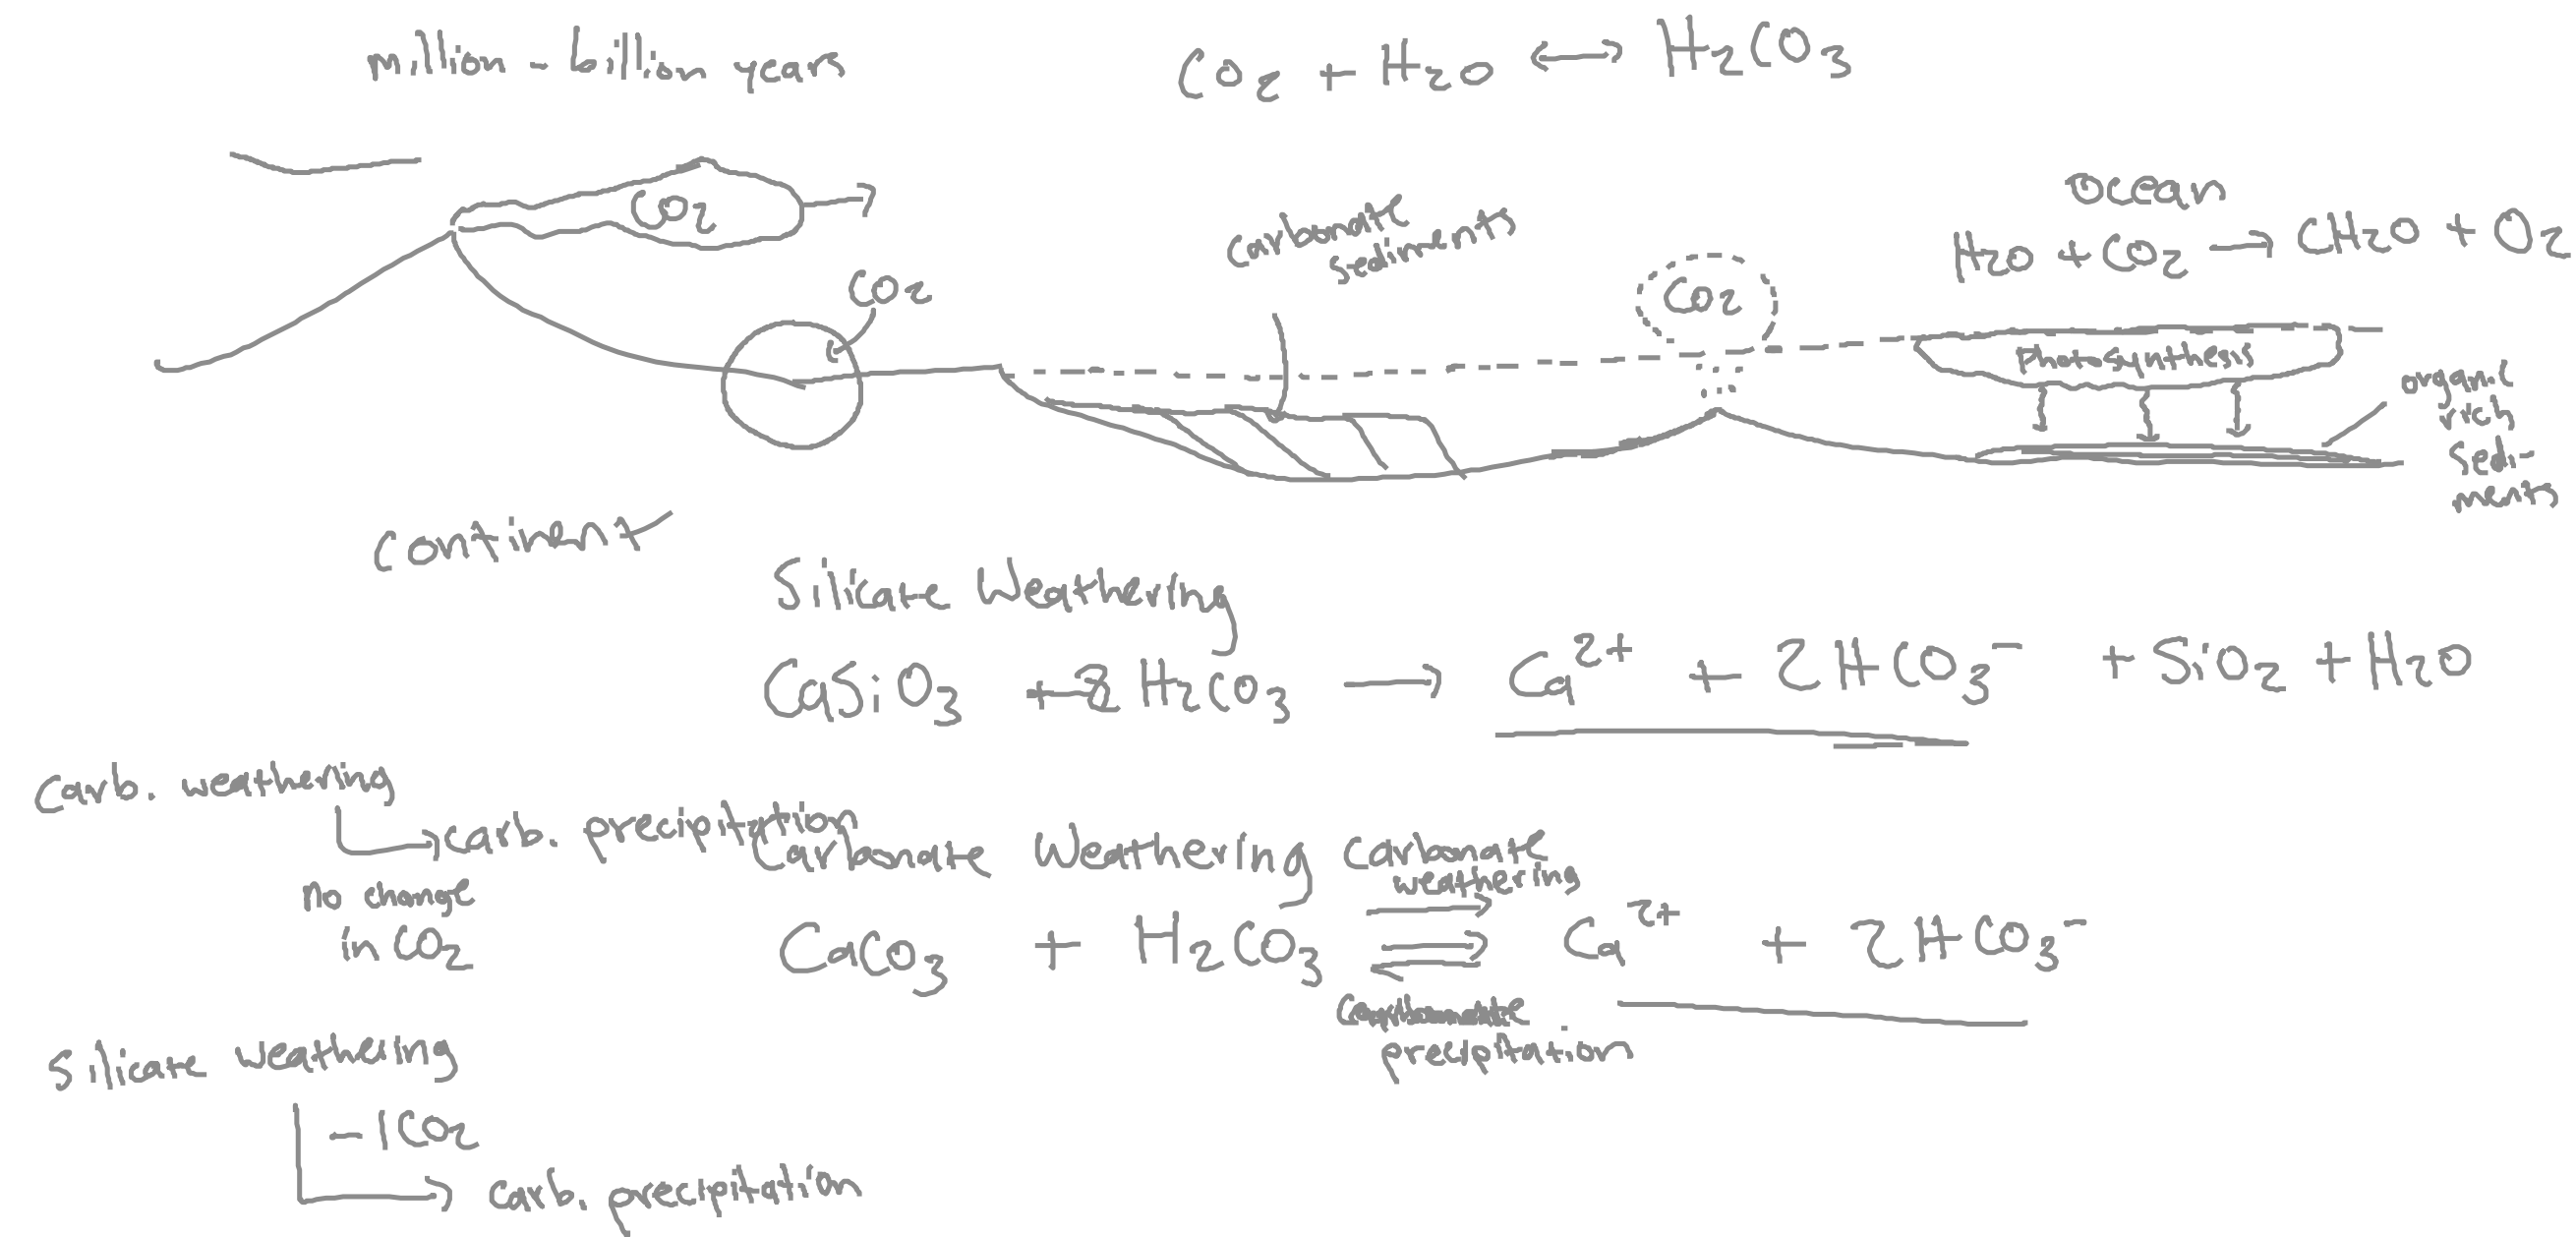 million - billion years
CO2 + H2O ↔ H2CO3
CO2
CO2
carbonate
sediments
CO2
ocean
H2O + CO2 → CH2O + O2
photosynthesis
organic
rich
sedi-
ments
continent
Silicate Weathering
CaSiO3 + 2 H2CO3 → Ca2+ + 2HCO3- + SiO2 + H2O
Carb. weathering
carb. precipitation
no change
in CO2
Carbonate Weathering
Carbonate
weathering
CaCO3 + H2CO3 ⇌ Ca2+ + 2HCO3-
Carbonate
precipitation
Silicate weathering
-1CO2
carb. precipitation